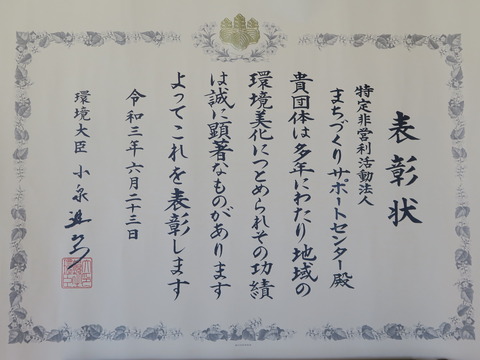 表彰状
特定非営利活動法人
まちづくりサポートセンター殿
貴団体は多年にわたり地域の
環境美化につとめられその功績
は誠に顕著なものがあります
よってこれを表彰します
令和三年六月二十三日
環境大臣 小泉進次郎